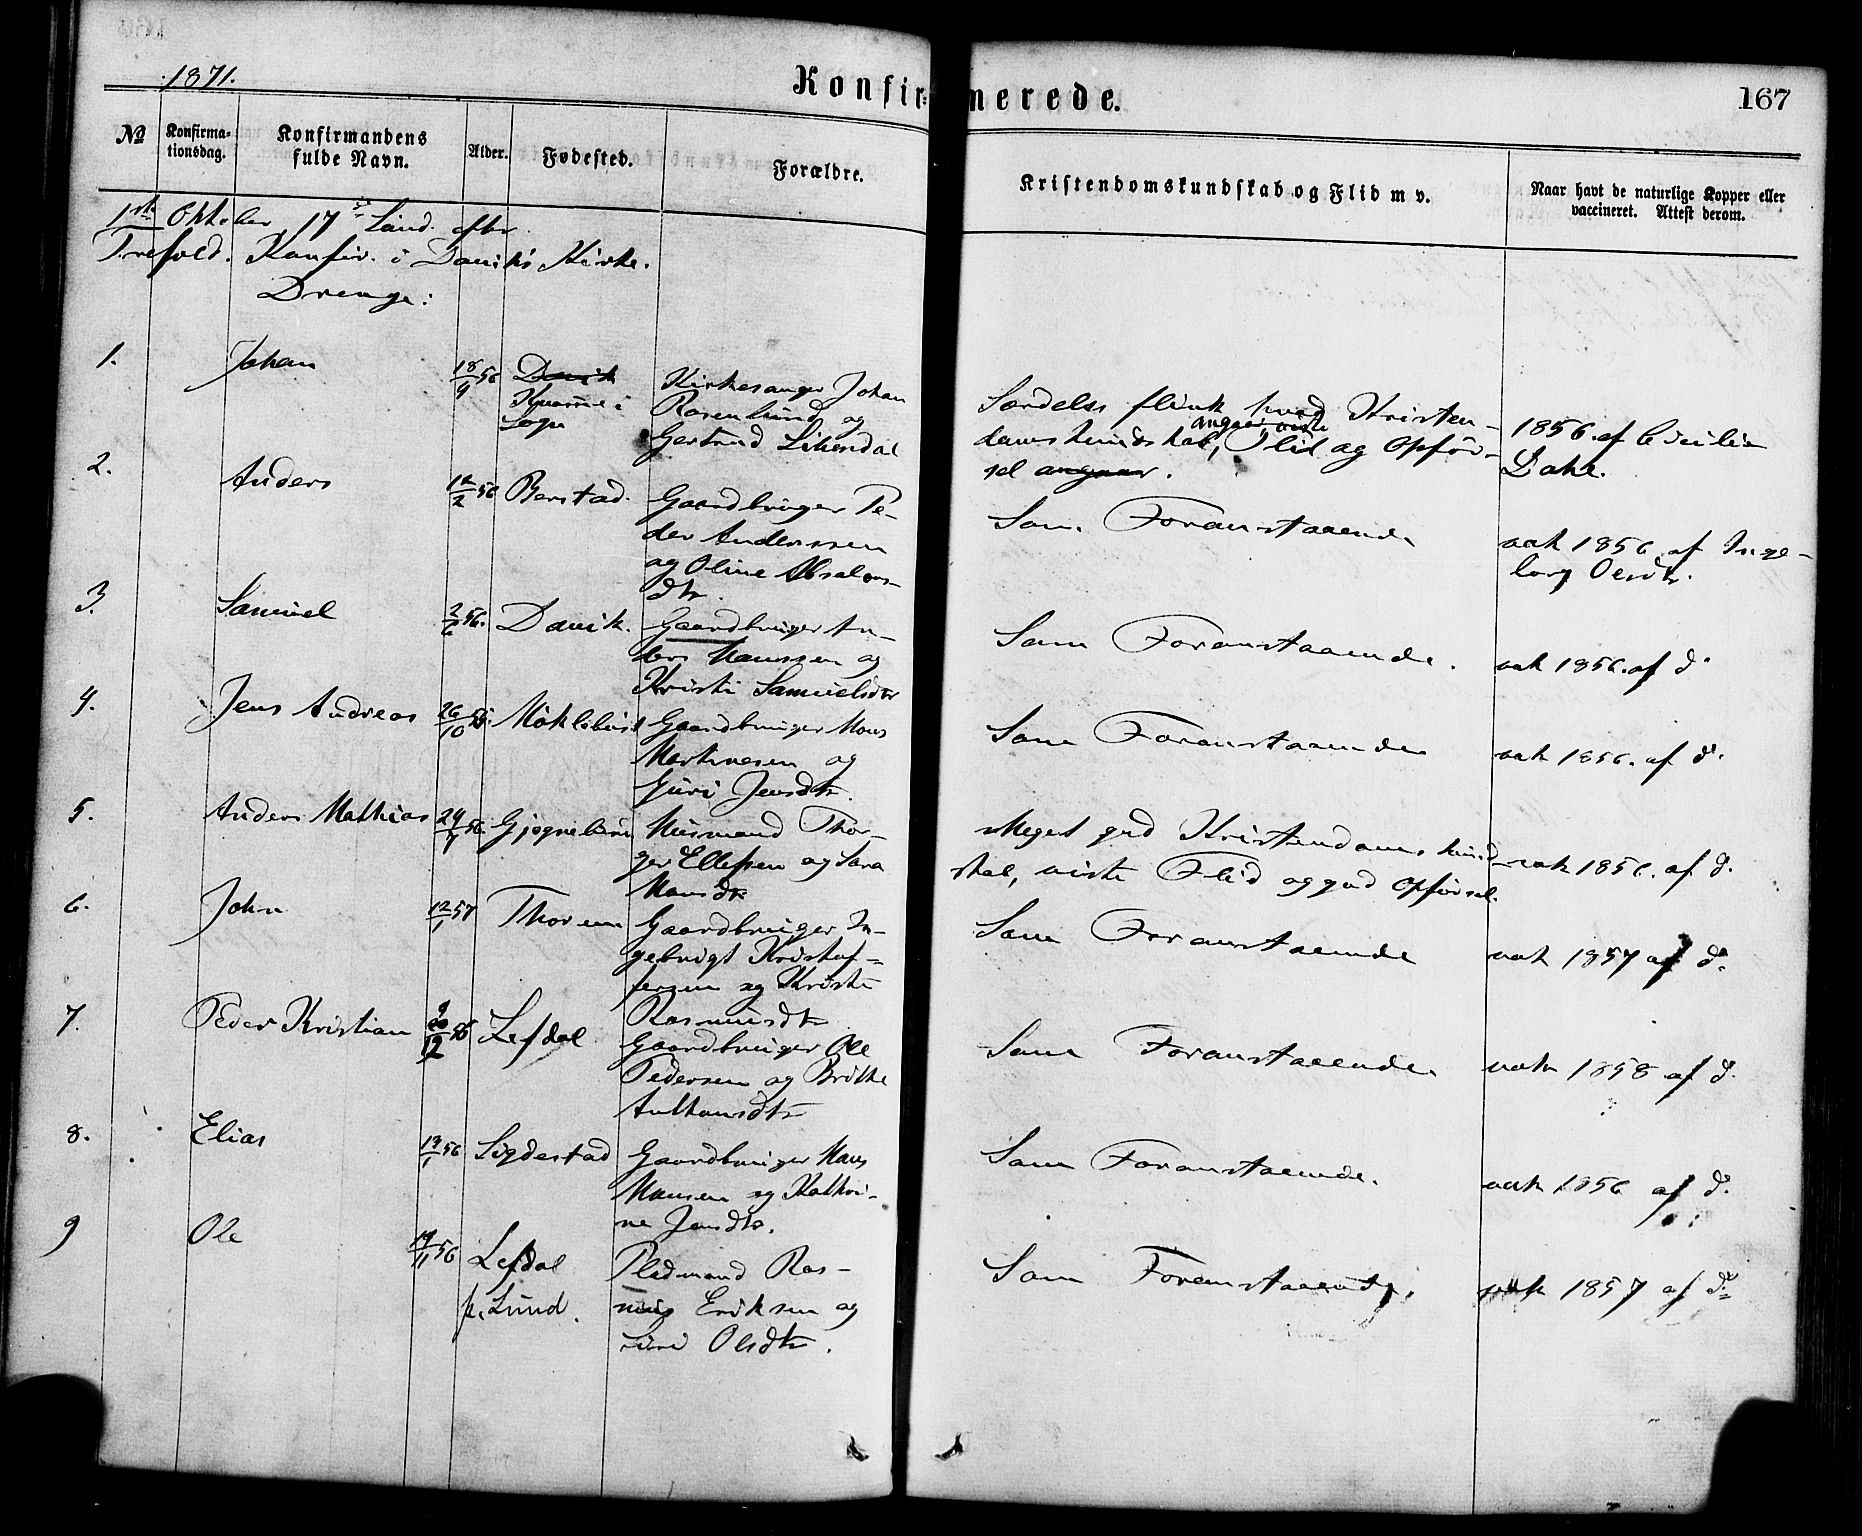 1871.
Konfirmerede.
167
No
Konfirma-
tionsdag.
Konfirmandens
fulde Navn.
Alder.
Fødested.
Forældre.
Kristendomskundskab og Flid m v.
Naar havt de naturlige Kopper eller
vaccineret. Attest derom.
1ste Oktober 17de Sønd. efter
Trefold. Konfir. i Daviks Kirke.
Drenge:
1. Johan 18/4 56 Davik
Kirkesanger Johan
Rosenlund og
Gertrud
Særdeles flink hvad Kristen-
angaar, viste
domskundskab, Flid og Opfør-
sel angaar.
1856. af
2. Anders 12/2 56 Berstad.
Gaardbruger Pe-
der Anderssen
og Oline Absalons-
dtr.
Som Foranstaaende
vak 1856 af Inge-
borg Olsdtr.
3. Samuel 2/6 56. Davik.
Gaardbruger An-
ders Hanssen og
Kristi Samuelsdtr
Som Foranstaaende.
vak 1856. af do
4. Jens Andreas 26/10 55. Møklebust
Gaardbruger Mons
Martinesen og
Guri Jensdtr.
Som Foranstaaende
vak 1856. af do.
5. Anders Mathias 24/7 56.
Husmand Thor-
ger Ellefsen og Sara
Hansdtr
Meget god Kristendomskund-
skab, viste Flid og god Opførsel.
vak 1856. af do.
6. John 12/1 57
Gaardbruger In-
gebrigt Kristof-
fersen og Kristi
Rasmusdtr
Som Foranstaaende
vak 1857 af do.
7. Peder Kristian Lefdal
Gaardbruger Ole
Pedersen og Brithe
Anthonsdtr
Som Foranstaaende
vak 1858 af do.
8. Elias 13/1 56 Sigdestad
Gaardbruger Hans
Hansen og Kathri-
ne Jensdtr.
Som Foranstaaende.
vak 1856 af do.
9 Ole 56 Lefdal
p. Lund.
Pladsmand Ras-
mus Eriksen og
Siri Olsdtr.
Som Foranstaaende.
vak 1857 af do